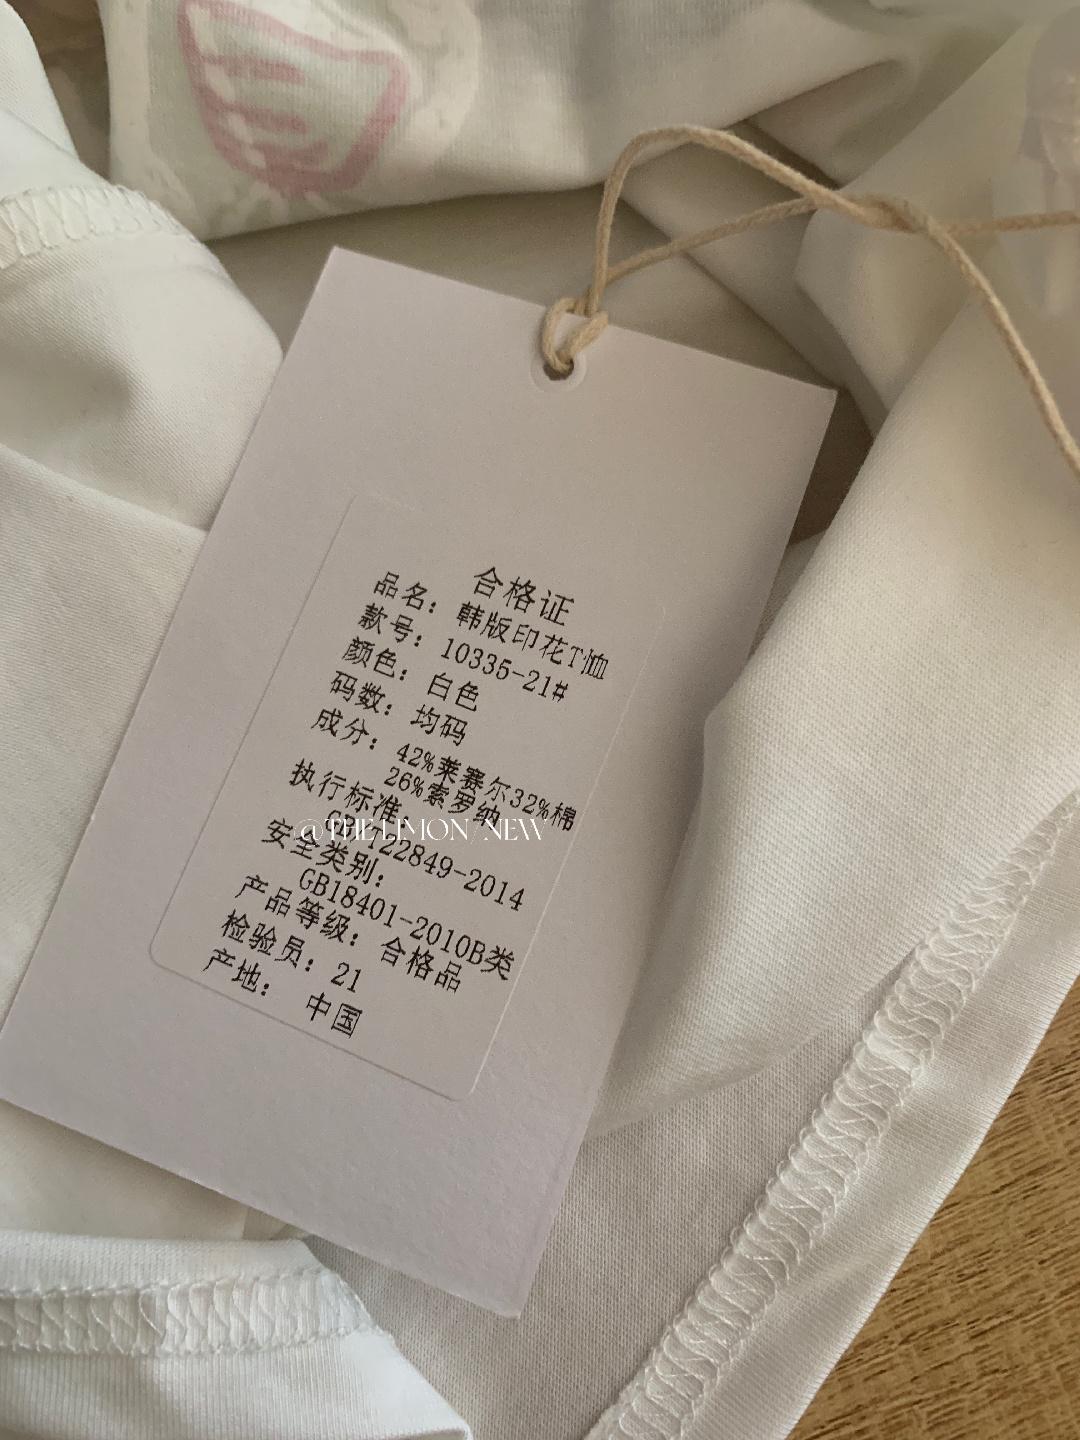 合格证
品名：韩版印花T恤
款号：10335-21#
颜色：白色
码数：均码
成分：42%莱赛尔32%棉
26%索罗纳
执行标准：
GB/T22849-2014
安全类别：
GB18401-2010B类
产品等级：合格品
检验员：21
产地：中国
@THE LIMON/NEW